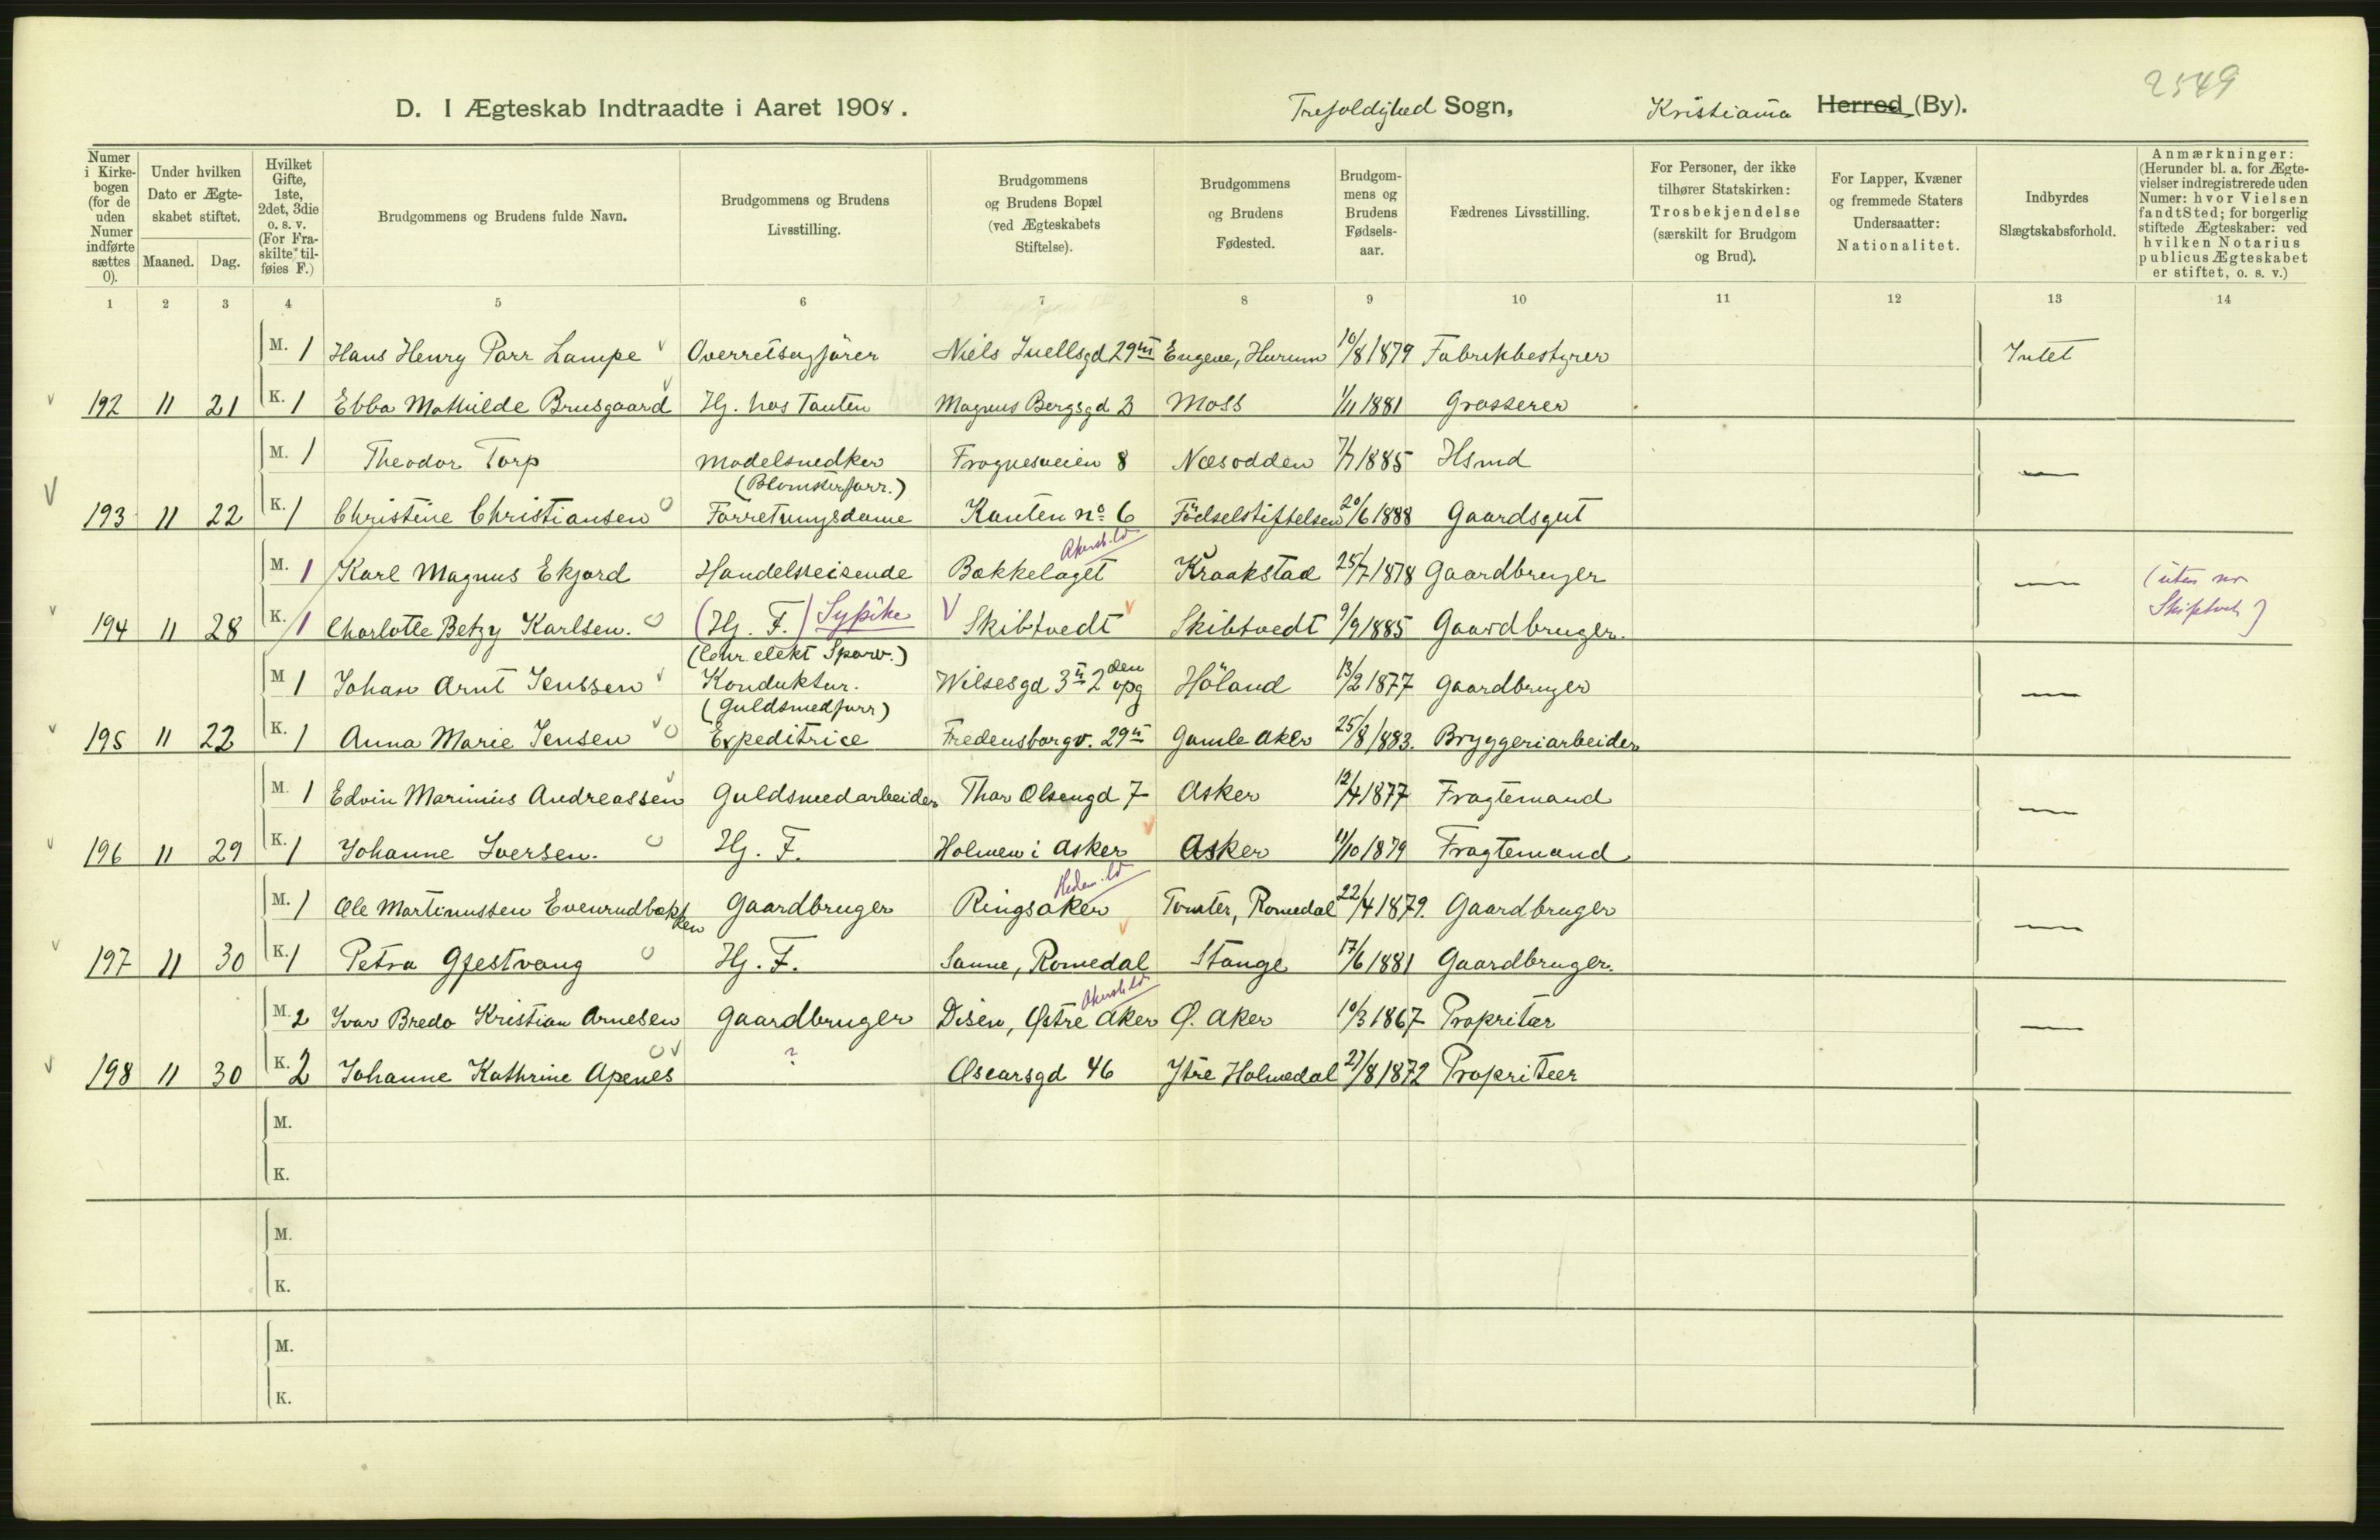 2549
D. I Ægteskab Indtraadte i Aaret 1908. Trefoldighed Sogn, Kristiania Herred (By).
Numer i Kirkebogen (for de uden Numer indførte sættes 0).
Under hvilken Dato er Ægteskabet stiftet.
Maaned. Dag.
Hvilket Gifte, 1ste, 2det, 3die o. s. v. (For Fraskilte tilføies F.)
Brudgommens og Brudens fulde Navn.
Brudgommens og Brudens Livsstilling.
Brudgommens og Brudens Bopæl (ved Ægteskabets Stiftelse).
Brudgommens og Brudens Fødested.
Brudgommens og Brudens Fødselsaar.
Fædrenes Livsstilling.
For Personer, der ikke tilhører Statskirken: Trosbekjendelse (særskilt for Brudgom og Brud).
For Lapper, Kvæner og fremmede Staters Undersaatter: Nationalitet.
Indbyrdes Slægtskabsforhold.
Anmærkninger: (Herunder bl. a. for Ægtevielser indregistrerede uden Numer: hvor Vielsen fandt Sted; for borgerlig stiftede Ægteskaber: ved hvilken Notarius publicus Ægteskabet er stiftet, o. s. v.)
1 2 3 4 5 6 7 8 9 10 11 12 13 14
M. 1 Hans Henry Parr Lampe Overretssagfører Niels Juellsgd 29 III Engene, Hurum 10/8 1879 Fabrikbestyrer Intet
192 11 21 K. 1 Ebba Mathilde Brusgaard Hj. hos Tanten Magnus Bergsgd 3 Moss 1/11 1881 Grosserer
M. 1 Theodor Torp Modelsnedker Frognesveien 8 Næsodden 7/7 1885 Hsmd —
(Blomsterforr.)
193 11 22 K. 1 Christine Christiansen Forretningsdame Kanten no 6 Fødselstiftelsen 20/6 1888 Gaardsgut
Akersh.
M. 1 Karl Magnus Ekjord Handelsreisende Bækkelaget Kraakstad 25/7 1878 Gaardbruger — (uten no
194 11 28 K. 1 Charlotte Betzy Karlsen. (Hj. F.) Sypike Skibtvedt Skibtvedt 9/9 1885 Gaardbruger. Skiptvet)
(Chr. elekt Sporv.)
M 1 Johan Arnt Jenssen Konduktør. Wilsesgd 3 II 2den opg Höland 13/2 1877 Gaardbruger —
(Guldsmedforr)
195 11 22 K. 1 Anna Marie Jensen Expeditrice Fredensborgv. 29 II Gamle Aker 25/8 1883. Bryggeriarbeider
M. 1 Edvin Marinius Andreassen Guldsmedarbeider Thor Olsengd 7 Asker 12/4 1877 Fragtemand —
196 11 29 K. 1 Johanne Iversen. Hj. F. Holmen i Asker Asker 11/10 1879 Fragtemand
Hedm.
M. 1 Ole Martinussen Evenrudbakken Gaardbruger Ringsaker Tomter, Romedal 22/4 1879. Gaardbruger —
197 11 30 K. 1 Petra Gjestvang Hj. F. Sanne, Romedal Stange 17/6 1881 Gaardbruger.
Akersh.
M. 2 Ivar Bredo Kristian Arnesen Gaardbruger Disen, Østre Aker Ø. Aker 10/3 1867 Propritær —
198 11 30 K. 2 Johanne Kathrine Apenes ? Oscarsgd 46 Ytre Holmedal 27/8 1872 Propritær
M.
K.
M.
K.
M.
K.